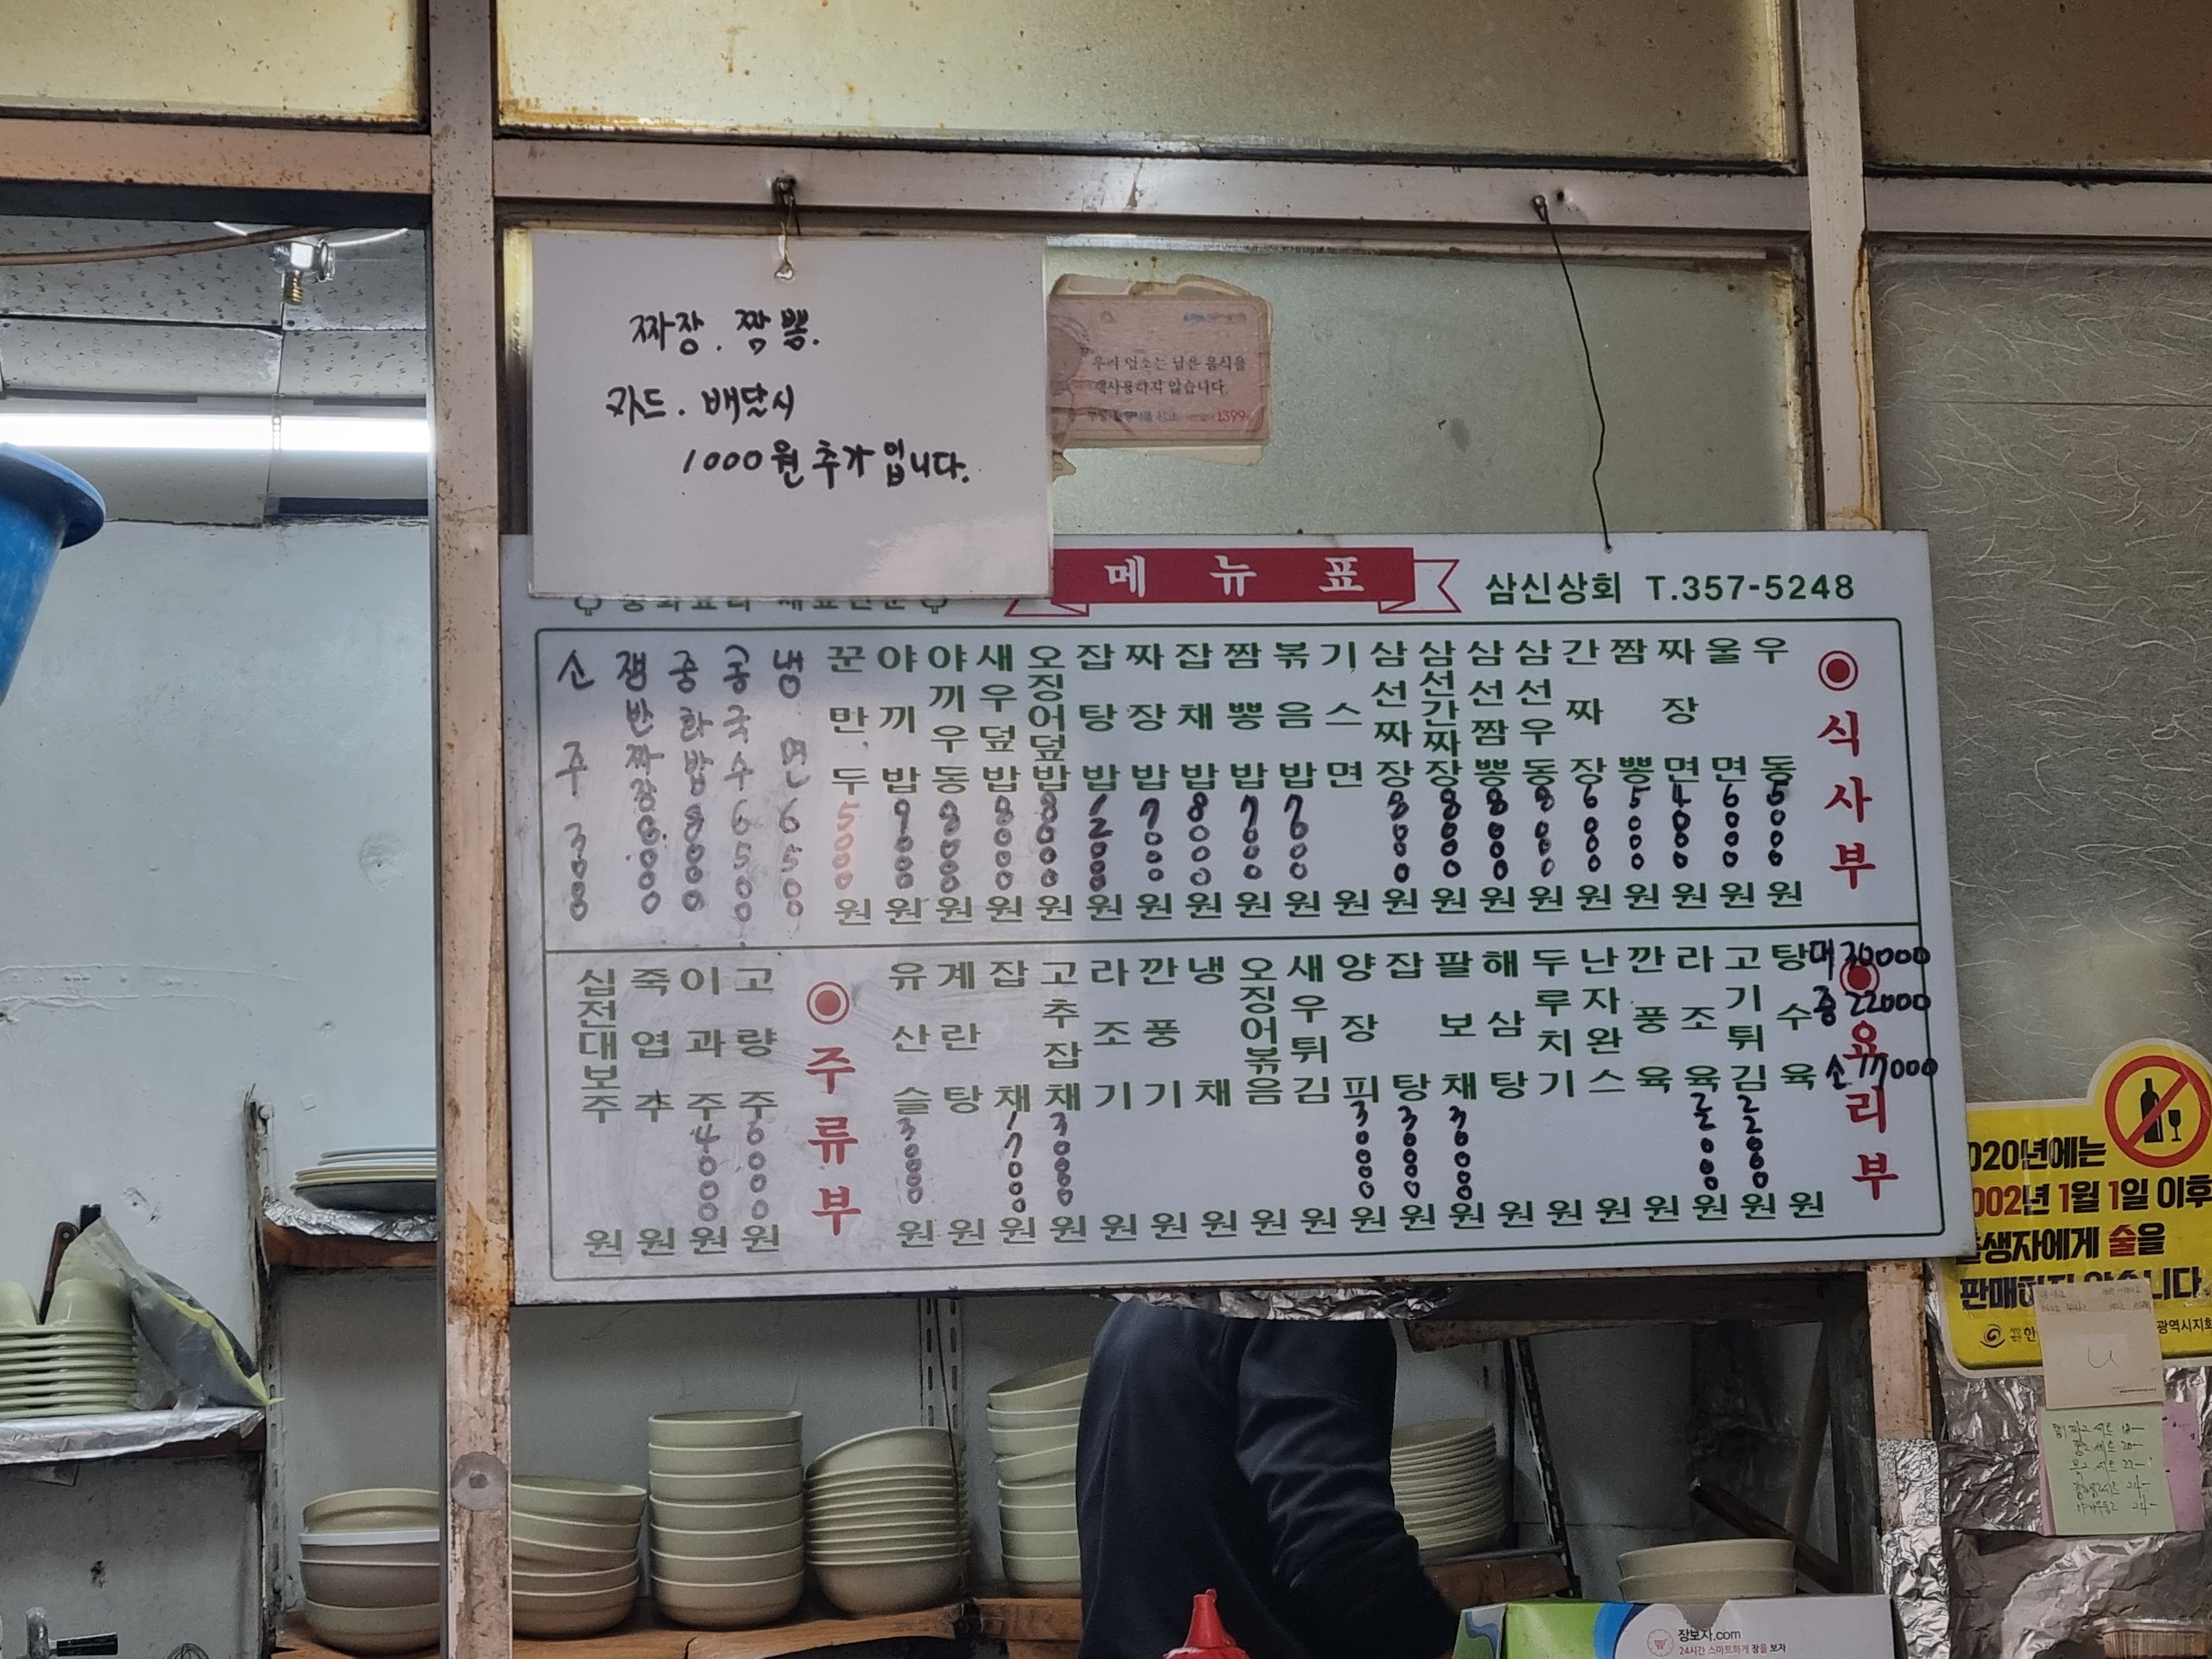 짜장. 짬뽕.
카드. 배달시
1000원 추가입니다.
우리 업소는 남은 음식을
재사용하지 않습니다.
1399
메뉴표
삼신상회 T.357-5248
식사부
우동 5000원
울면 6000원
짜장면 4000원
짬뽕 5000원
간짜장 6000원
삼선우동 8000원
삼선짬뽕 8000원
삼선간짜장 8000원
삼선짜장 8000원
기스면 원
볶음밥 7000원
짬뽕밥 7000원
잡채밥 8000원
짜장밥 7000원
잡탕밥 12000원
오징어덮밥 8000원
새우덮밥 8000원
야끼우동 8000원
야끼밥 9000원
꾼만두 5000원
냉면 6500
콩국수 6500
중화밥 8000
쟁반짜장 6000
소주 3000
요리부
탕수육 대 30000 중 22000 소 17000 원
고기튀김 20000원
라조육 20000원
깐풍육 원
난자완스 원
두루치기 원
해삼탕 원
팔보채 30000원
잡탕 30000원
양장피 30000원
새우튀김 원
오징어볶음 원
냉채 원
깐풍기 원
라조기 원
고추잡채 30000원
잡채 17000원
계란탕 원
유산슬 30000원
주류부
고량주 6000원
이과주 4000원
죽엽주 원
십전대보주 원
020년에는
002년 1월 1일 이후
생자에게 술을
광역시지회
장보자.com
24시간 스마트하게 장을 보자